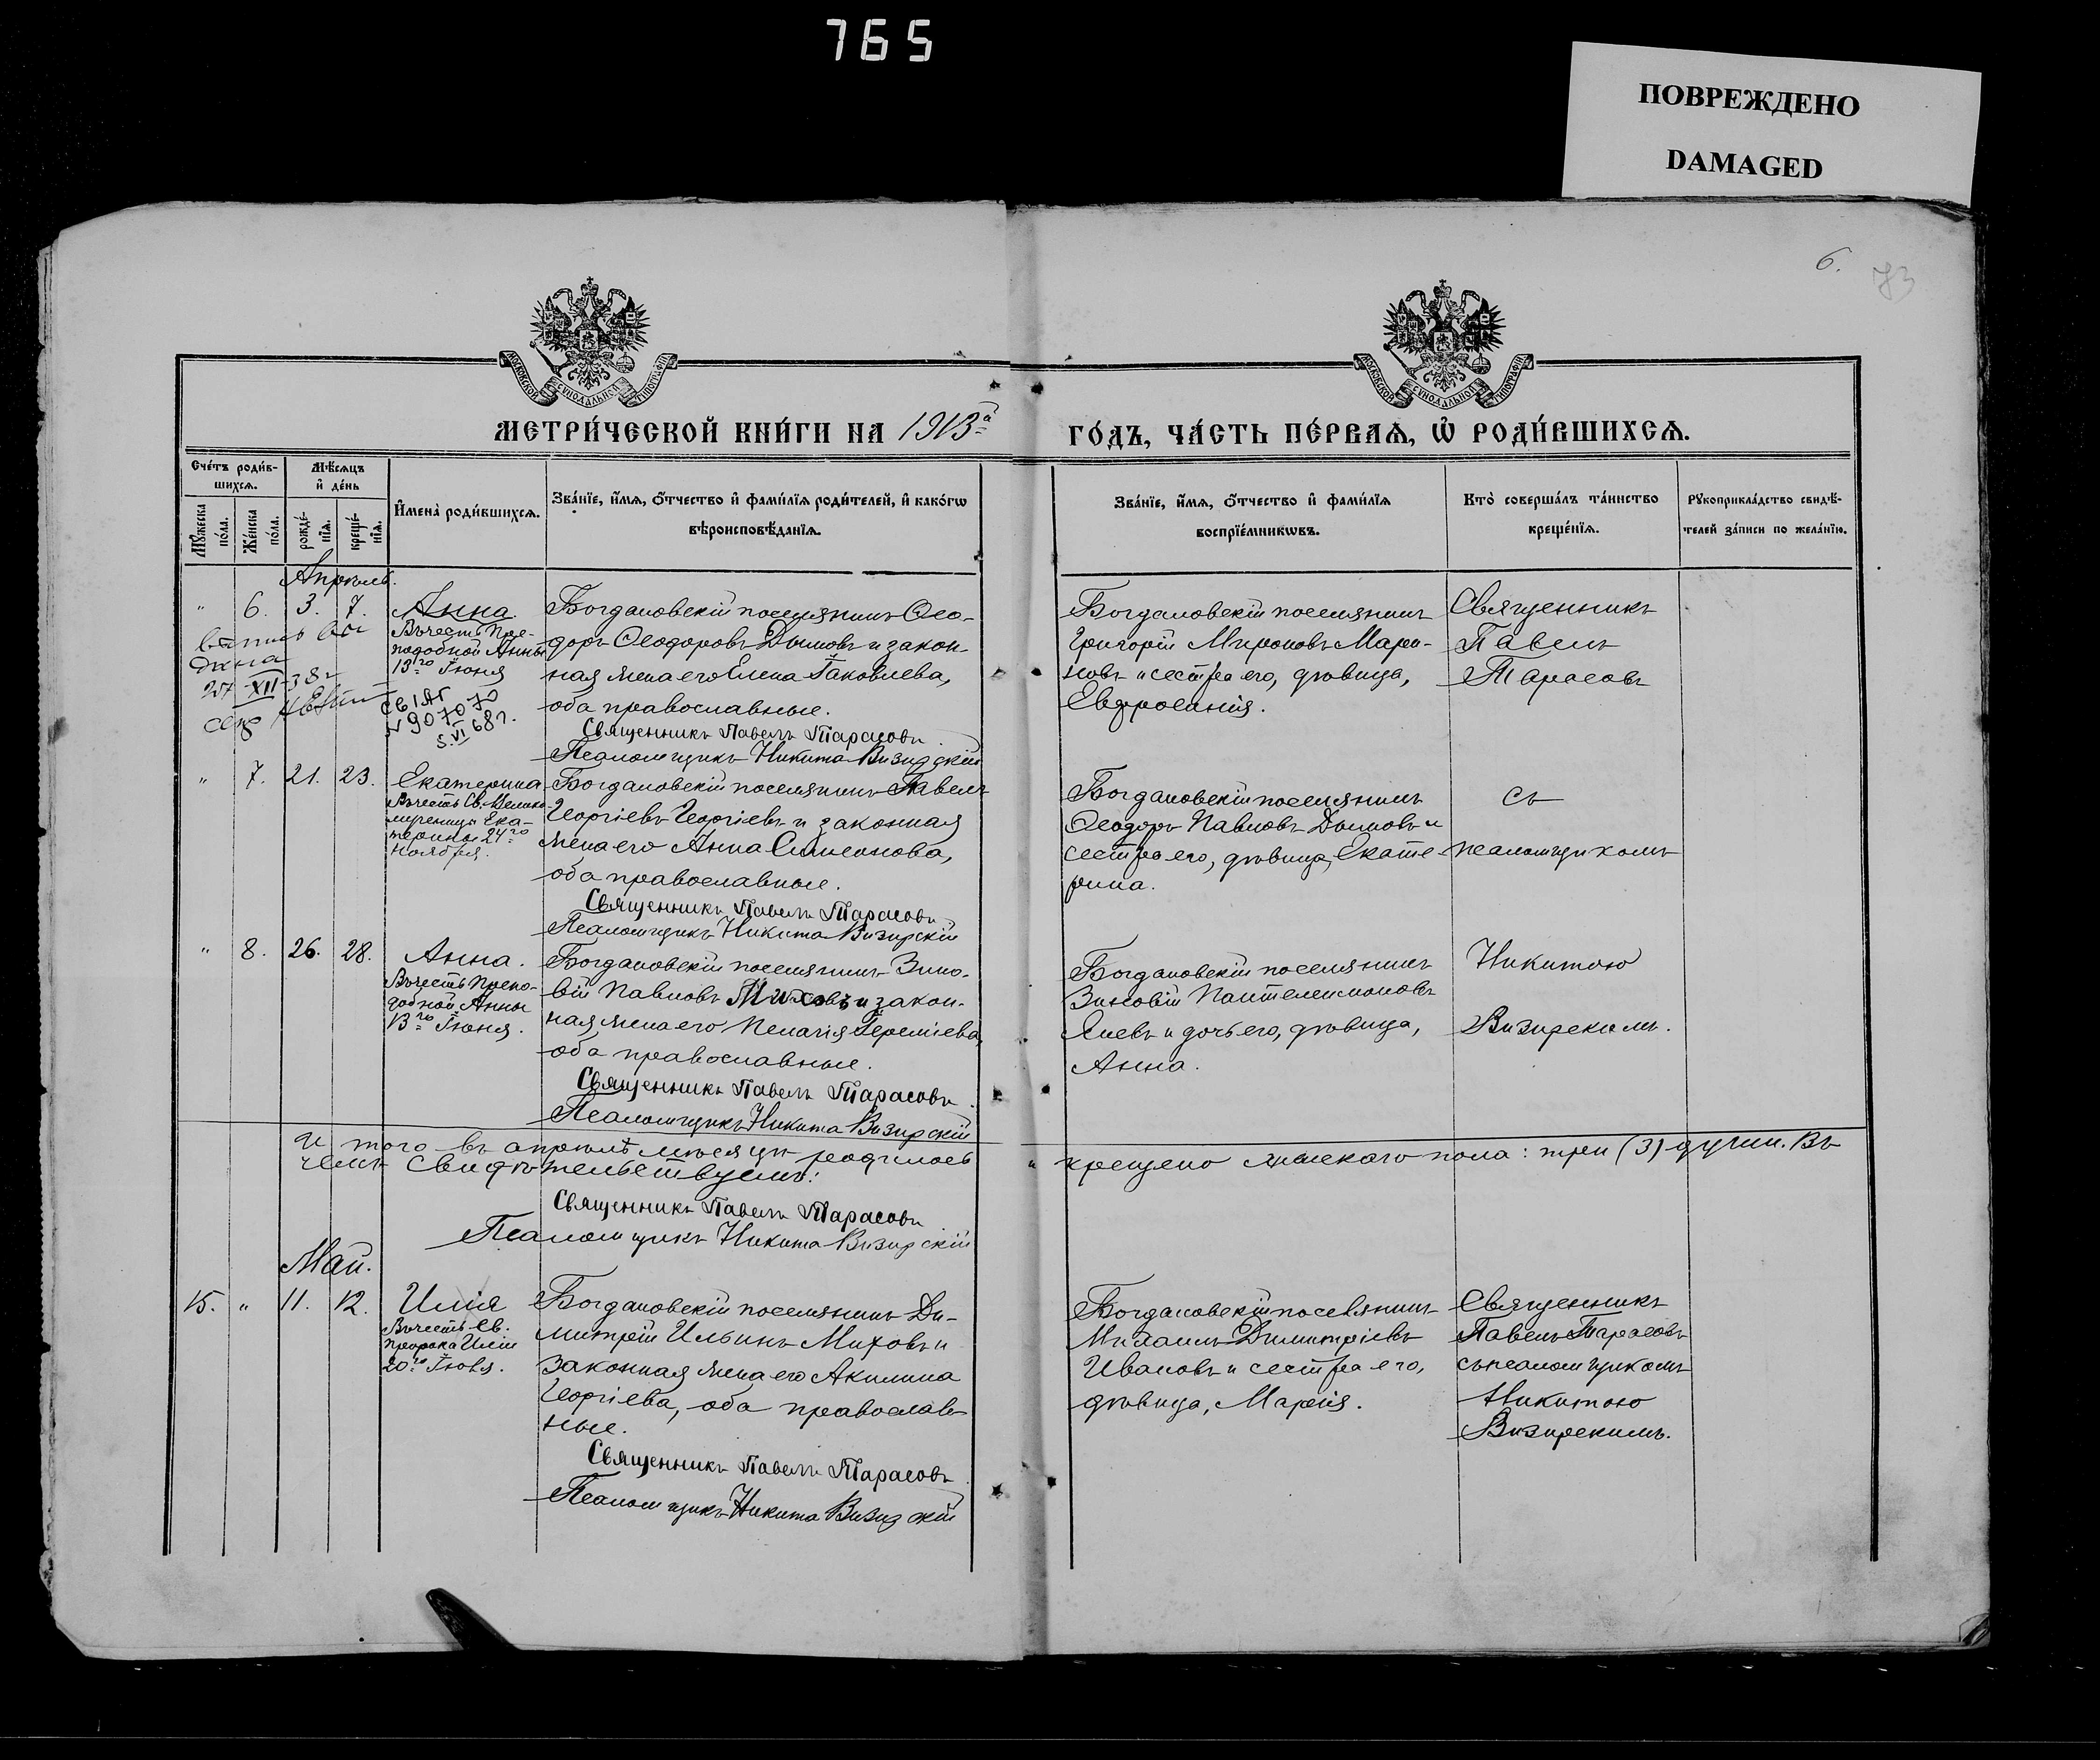 765
ПОВРЕЖДЕНО
DAMAGED
6.
73
МОСКОВСКОЙ СѴНОДАЛЬНОЙ ТИПОГРАФІИ
МОСКОВСКОЙ СѴНОДАЛЬНОЙ ТИПОГРАФІИ
МЕТРИ́ЧЕСКОЙ КНИ́ГИ НА 1913 а̀
ГО́ДЪ, ЧА́СТЬ ПЕ́РВАѦ, Ѡ҆ РОДИ́ВШИХСѦ.
Сче́тъ роди́в-
шихсѧ.
Мѣ́сѧцъ
и҆ де́нь
Мꙋ́жеска по́ла.
Же́нска по́ла.
рожде́-нїѧ.
креще́-нїѧ.
И҆мена̀ роди́вшихсѧ.
Зва́нїе, и҆́мѧ, о҆́тчество и҆ фами́лїѧ роди́телей, и҆ како́гѡ
вѣроисповѣ́данїѧ.
Зва́нїе, и҆́мѧ, о҆́тчество и҆ фами́лїѧ
воспрїе́мникѡвъ.
Кто̀ соверша́лъ та́инство
креще́нїѧ.
Рꙋкоприкла́дство свидѣ́-
телей за́писи по жела́нїю.
Апрѣль.
" 6. 3. 7. Анна.
Въ честь Пре-
подобной Анны
13го Іюня
27-XII-38г
СВ IАГ
N 907070
5.VI 68г.
Богдановскій поселянинъ Ѳео-
доръ Ѳеодоровъ Дымовъ и закон-
ная жена его Елена Іаковлева,
оба православные.
Священникъ Павелъ Тарасовъ
Псаломщикъ Никита Визирскій
Богдановскій поселянинъ
Григорій Мироновъ Мари-
новъ и сестра его, дѣвица,
Евфросинія.
Священникъ
Павелъ
Тарасовъ
" 7. 21. 23. Екатерина
Въ честь Св. Велико-
мученицы Ека-
терины 24го
Ноября.
Богдановскій поселянинъ Павелъ
Георгіевъ Георгіевъ и законная
жена его Анна Симеонова,
оба православные.
Священникъ Павелъ Тарасовъ
Псаломщикъ Никита Визирскій
Богдановскій поселянинъ
Ѳеодоръ Павловъ Дымовъ и
сестра его, дѣвица, Екате-
рина.
съ
псаломщикомъ
" 8. 26. 28. Анна.
Въ честь Препо-
добной Анны
13го Іюня.
Богдановскій поселянинъ Зино-
вій Павловъ Миховъ и закон-
ная жена его Пелагія Іереміева,
оба православные.
Священникъ Павелъ Тарасовъ
Псаломщикъ Никита Визирскій
Богдановскій поселянинъ
Зиновій Пантелеимоновъ
и дочь его, дѣвица,
Анна.
Никитою
Визирскимъ.
Итого въ апрѣлѣ мѣсяцѣ родилось и крещено женскаго пола: три (3) души. Въ
чемъ свидѣтельствуемъ:
Священникъ Павелъ Тарасовъ
Псаломщикъ Никита Визирскій
Май.
15. " 11. 12. Илія
Въ честь Св.
пророка Иліи
20го Іюля.
Богдановскій поселянинъ Ди-
митрій Ильинъ Миховъ и
законная жена его Акилина
Георгіева, оба православ-
ные.
Священникъ Павелъ Тарасовъ
Псаломщикъ Никита Визирскій
Богдановскій поселянинъ
Михаилъ Димитріевъ
Ивановъ и сестра его,
дѣвица, Марія.
Священникъ
Павелъ Тарасовъ
съ псаломщикомъ
Никитою
Визирскимъ.